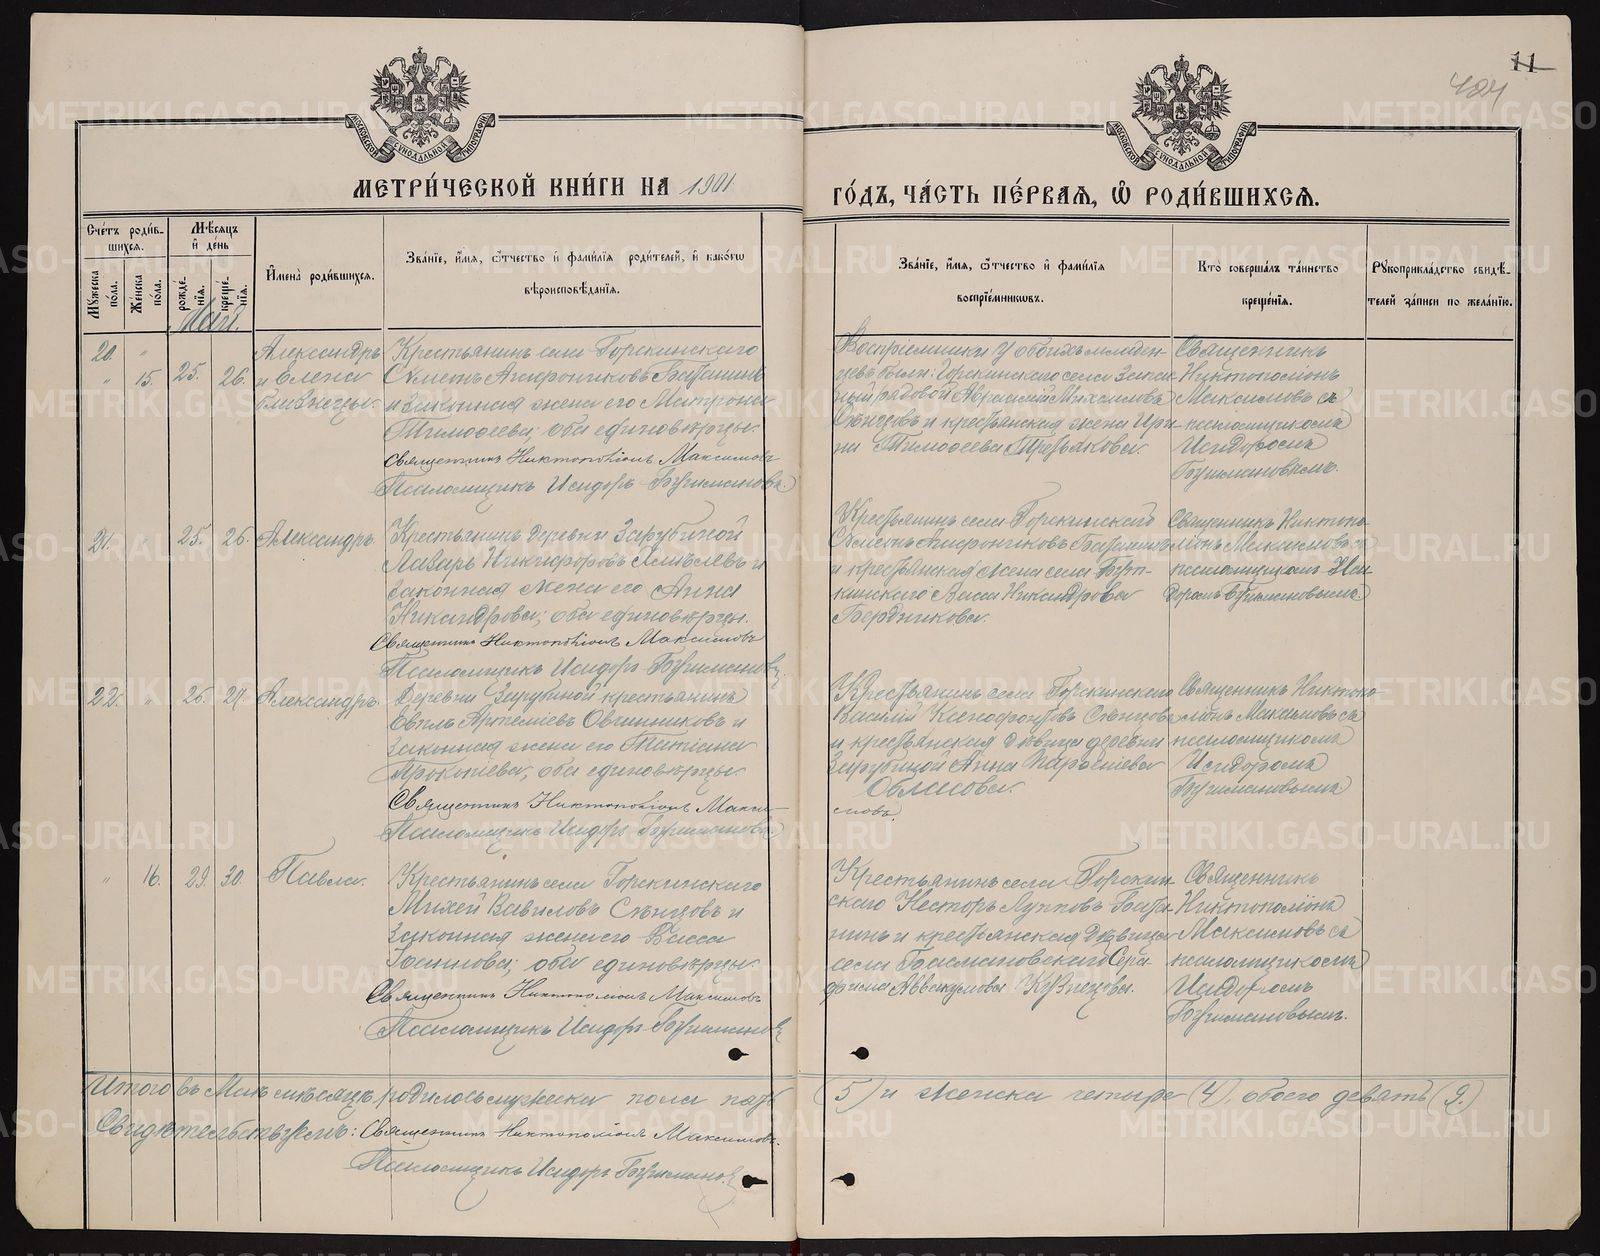 11
424
МОСКОВСКОЙ СѴНОДАЛЬНОЙ ТИПОГРАФІИ
МОСКОВСКОЙ СѴНОДАЛЬНОЙ ТИПОГРАФІИ
МЕТРИ́ЧЕСКОЙ КНИ́ГИ НА 1901
ГО́ДЪ, ЧА́СТЬ ПЕ́РВАЯ, Ѽ РОДИ́ВШИХСЯ.
Сче́тъ роди́в-
шихся.
Мꙋжеска по́ла.
Же́нска по́ла.
Мѣ́сяцъ
и҆ де́нь
рожде́-
нїя.
креще́-
нїя.
И҆мена̀ роди́вшихся.
Зва́нїе, и҆́мя, ѻ҆́тчество и҆ фами́лїя роди́телей, и҆ како́гѡ
вѣроисповѣ́данїя.
Зва́нїе, и҆́мя, ѻ҆́тчество и҆ фами́лїя
воспрїе́мникѡвъ.
Кто̀ соверша́лъ та́инство
креще́нїя.
Рꙋкоприкла́дство свидѣ́-
телей за́писи по жела́нїю.
Май.
20. " 25. 26.
" 15.
Александръ
и Елена
близнецы.
Крестьянинъ села Горскинскаго
Багашинъ
и законная жена его Матрона
Тимоѳеева; оба единовѣрцы.
Священникъ Никтополіонъ Максимовъ
Псаломщикъ Исидоръ
Воспріемники у обоихъ младен-
цевъ были: Горскинскаго села Запас-
ный рядовой Михаиловъ
Сѣнцовъ и крестьянская жена Ири-
на Тимоѳеева Третьякова.
Священникъ
Никтополіонъ
Максимовъ съ
псаломщикомъ
Исидоромъ
21. " 25. 26. Александръ.
Крестьянинъ деревни Зарубиной
Лазарь Никифоровъ и
законная жена его Анна
Никандрова; оба единовѣрцы.
Священникъ Никтополіонъ Максимовъ
Псаломщикъ Исидоръ
Крестьянинъ села Горскинскаго
и крестьянская жена села
Васса Никандрова
Бердникова.
Священникъ Никтопо-
ліонъ Максимовъ съ
псаломщикомъ Иси-
доромъ
22. " 26. 27. Александръ.
Деревни Зарубиной крестьянинъ
Евплъ Артеміевъ Овчинниковъ и
законная жена его Татіана
Прокопіева; оба единовѣрцы.
Священникъ Никтополіонъ Макси-
мовъ.
Псаломщикъ Исидоръ
Крестьянинъ села Горскинскаго
Василій Ксенофонтовъ Сѣнцовъ
и крестьянская дѣвица деревни
Зарубиной Анна
Священникъ Никтопо-
ліонъ Максимовъ съ
псаломщикомъ
Исидоромъ
" 16. 29. 30. Павла.
Крестьянинъ села Горскинскаго
Михей Вавиловъ Сѣнцовъ и
законная жена его Васса
Іоаннова; оба единовѣрцы.
Священникъ Никтополіонъ Максимовъ
Псаломщикъ Исидоръ
Крестьянинъ села Горскин-
скаго Несторъ Лупповъ Бага-
шинъ и крестьянская дѣвица
села Басмановскаго Сера-
фима Аввакумова Кузнецова.
Священникъ
Никтополіонъ
Максимовъ съ
псаломщикомъ
Исидоромъ
Итого въ Маѣ мѣсяцѣ родилось мужеска пола пять (5) и женска четыре (4), обоего девять (9.)
Свидѣтельствуемъ: Священникъ Никтополіонъ Максимовъ.
Псаломщикъ Исидоръ
METRIKI.GASO-URAL.RU